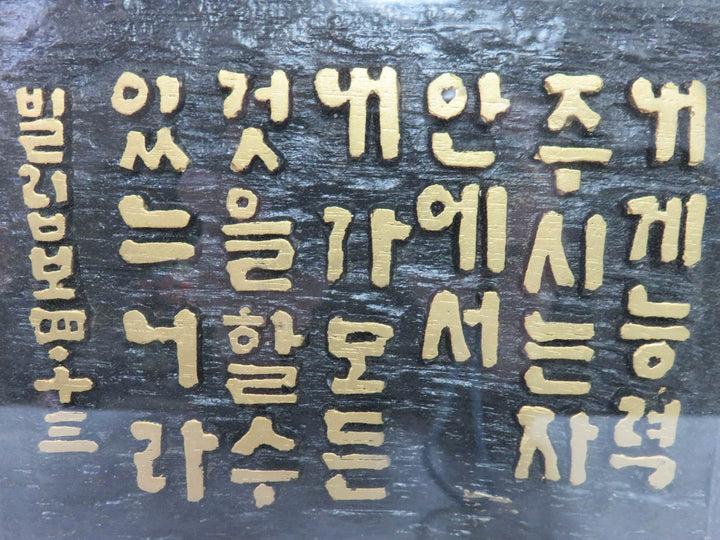 내게능력
주시는자
안에서
내가모든
것을할수
있느니라
빌립보四·十三